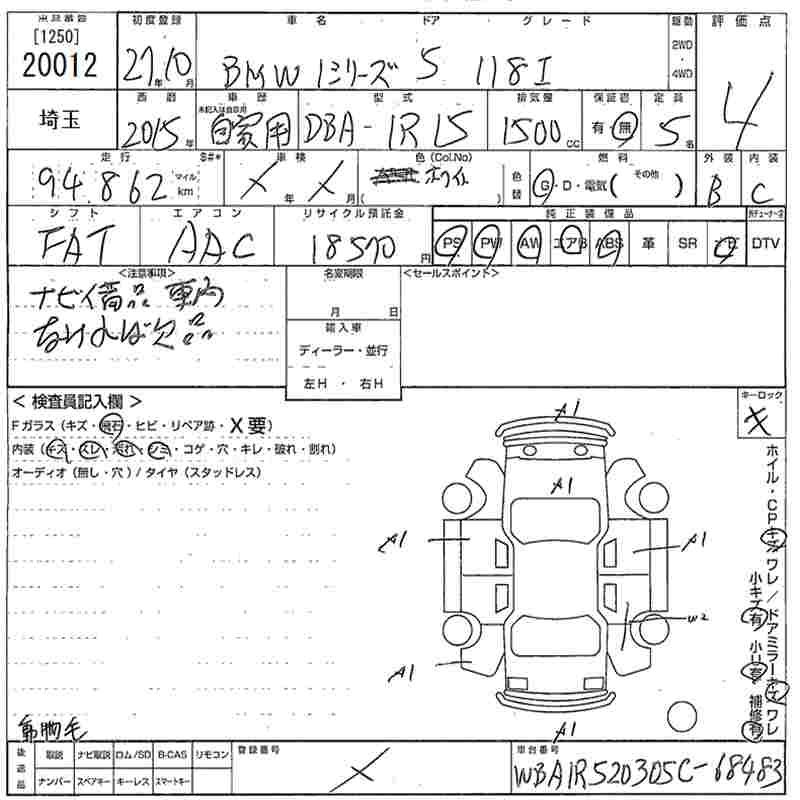 [1250]
20012
初度登録
27年10月
車名 ドア グレード
BMW 1シリーズ 5 118I
駆動
2WD
4WD
評価点
4
埼玉
西暦
2015年
車歴
未記入は自家用
自家用
型式
DBA-1R15
排気量
1500cc
保証書
有・無
定員
5名
走行
94,862
マイル
km
S#*
車検
X年X月
色 (Col.No)
ホワイト
色替
燃料
G・D・電気( その他 )
外装
B
内装
C
シフト
FAT
エアコン
AAC
リサイクル預託金
18570円
純正装備品
PS PW AW エアB ABS 革 SR ナビ DTV
<注意事項>
ナビ備品車内
なければ欠品
名変期限
月 日
輸入車
ディーラー・並行
左H ・ 右H
<セールスポイント>
<検査員記入欄>
Fガラス(キズ・飛石・ヒビ・リペア跡・X要)
内装(キズ・スレ・汚れ・シミ・コゲ・穴・キレ・破れ・割れ)
オーディオ(無し・穴)/タイヤ(スタッドレス)
キーロック
キ
A1
A1
A1
A1
W2
A1
A1
ホイル・CPキズ ワレ/ドアミラーキズ ワレ
小キズ有 小リ有 補修有
後送品
取説 ナビ取説 ロム/SD B-CAS リモコン
ナンバー スペアキー キーレス スマートキー
登録番号
X
車台番号
WBA1R520305C-68483